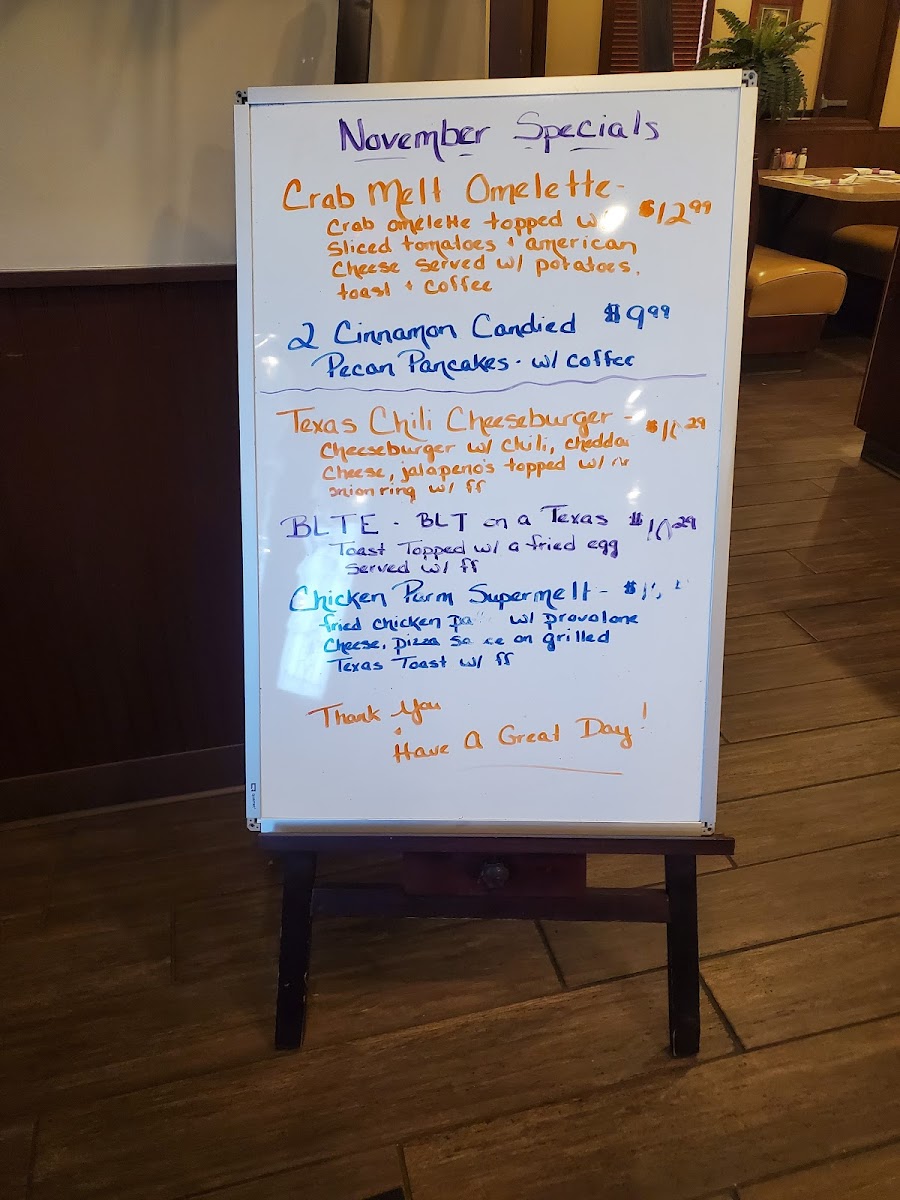 November Specials
Crab Melt Omelette - $12.99
Crab omelette topped w/
sliced tomatoes + american
cheese served w/ potatoes,
toast + coffee
2 Cinnamon Candied $9.99
Pecan Pancakes - w/ coffee
Texas Chili Cheeseburger -
Cheeseburger w/ chili, chedda
cheese, jalapeno's topped w/
onion ring w/ ff
BLTE - BLT on a Texas
Toast Topped w/ a fried egg
served w/ ff
Chicken Parm Supermelt -
fried chicken w/ provolone
cheese, pizza on grilled
Texas Toast w/ ff
Thank You
Have A Great Day!